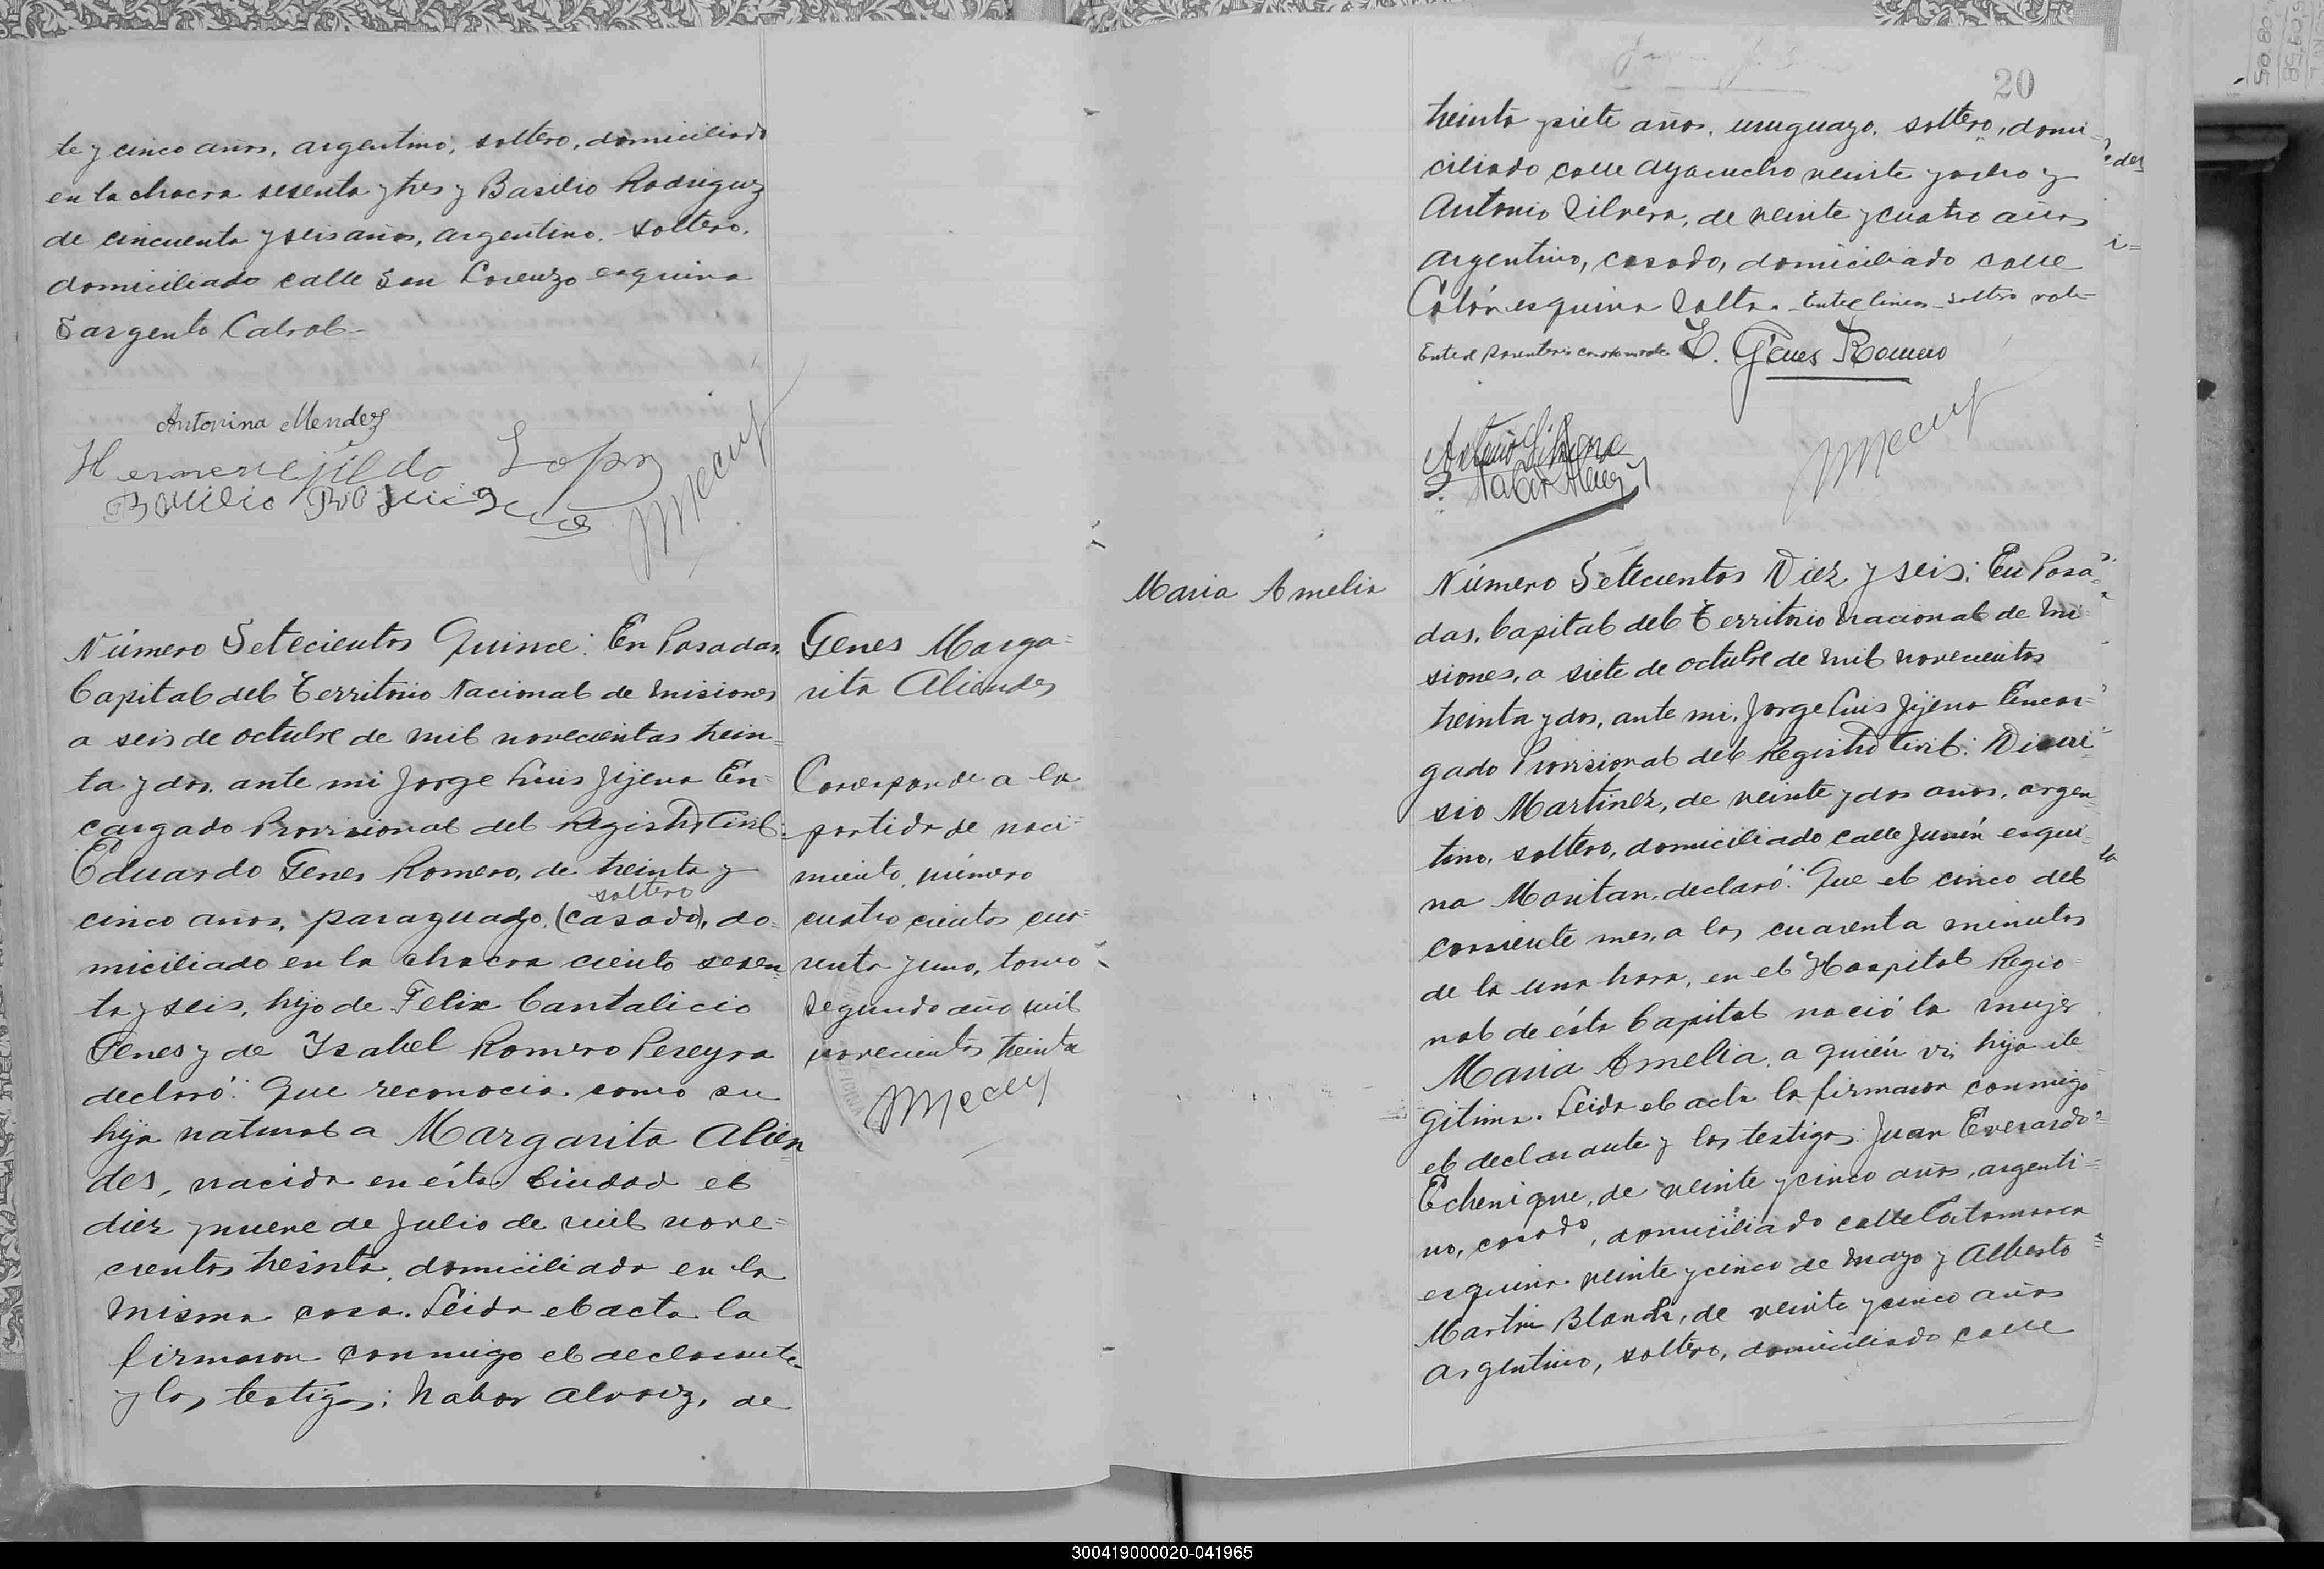 te y cinco años, argentino, soltero, domiciliado
en la chacra sesenta y tres y Basilio Rodriguez
de cincuenta y seis años, argentino, soltero,
domiciliado calle San Lorenzo esquina
Sargento Cabral-
Antonina Mendez
Hermenejildo Lopez
Basilio Rodriguez
Número Setecientos Quince: En Posadas,
Capital del Territorio Nacional de Misiones
a seis de octubre de mil novecientos trein=
ta y dos, ante mi Jorge Luis Jijena En=
cargado Provisional del Registro Civil:
Eduardo Genes Romero, de treinta y
soltero
cinco años, paraguayo, (casado), do=
miciliado en la chacra ciento sesen=
ta y seis, hijo de Felix Cantalicio
Genes y de Ysabel Romero Pereyra
declaró: Que reconocia como su
hija natural a Margarita Alien=
des, nacida en ésta Ciudad el
diez y nueve de Julio de mil nove=
cientos treinta, domiciliada en la
misma casa. Leida el acta la
firmaron conmigo el declarante
y los testigos: Nabor Alvarez, de
Genes Marga=
rita Aliendes
Corresponde a la
partida de naci=
miento, número
cuatrocientos cua=
renta y uno, tomo
segundo año mil
novecientos treinta
20
treinta y siete años, uruguayo, soltero, domi=
ciliado calle Ayacucho veinte y ocho y
Antonio Silvera, de veinte y cuatro años
argentino, casado, domiciliado calle
Colón esquina Salta. Entre lineas-soltero-vale-
Entre parentesis casado no vale E. Genes Romero
Antonio Silvera
Nabor Alvarez
Maria Amelia
Número Setecientos Diez y seis: En Posa=
das, Capital del Territorio Nacional de Mi=
siones, a siete de octubre de mil novecientos
treinta y dos, ante mi, Jorge Luis Jijena Encar=
gado Provisional del Registro Civil: Dioni=
sio Martinez, de veinte y dos años, argen=
tino, soltero, domiciliado calle Junín esqui=
na Moritan, declaró: Que el cinco del
corriente mes, a los cuarenta minutos
de la una hora, en el Hospital Regio=
nal de ésta Capital nació la mujer
Maria Amelia, a quién vi, hija ile=
gitima. Leida el acta la firmaron conmigo
el declarante y los testigos: Juan Everardo
Echenique, de veinte y cinco años, argenti=
no, casado, domiciliado calle Catamarca
esquina veinte y cinco de Mayo y Alberto
Martin Blanch, de veinte y cinco años
argentino, soltero, domiciliado calle
300419000020-041965